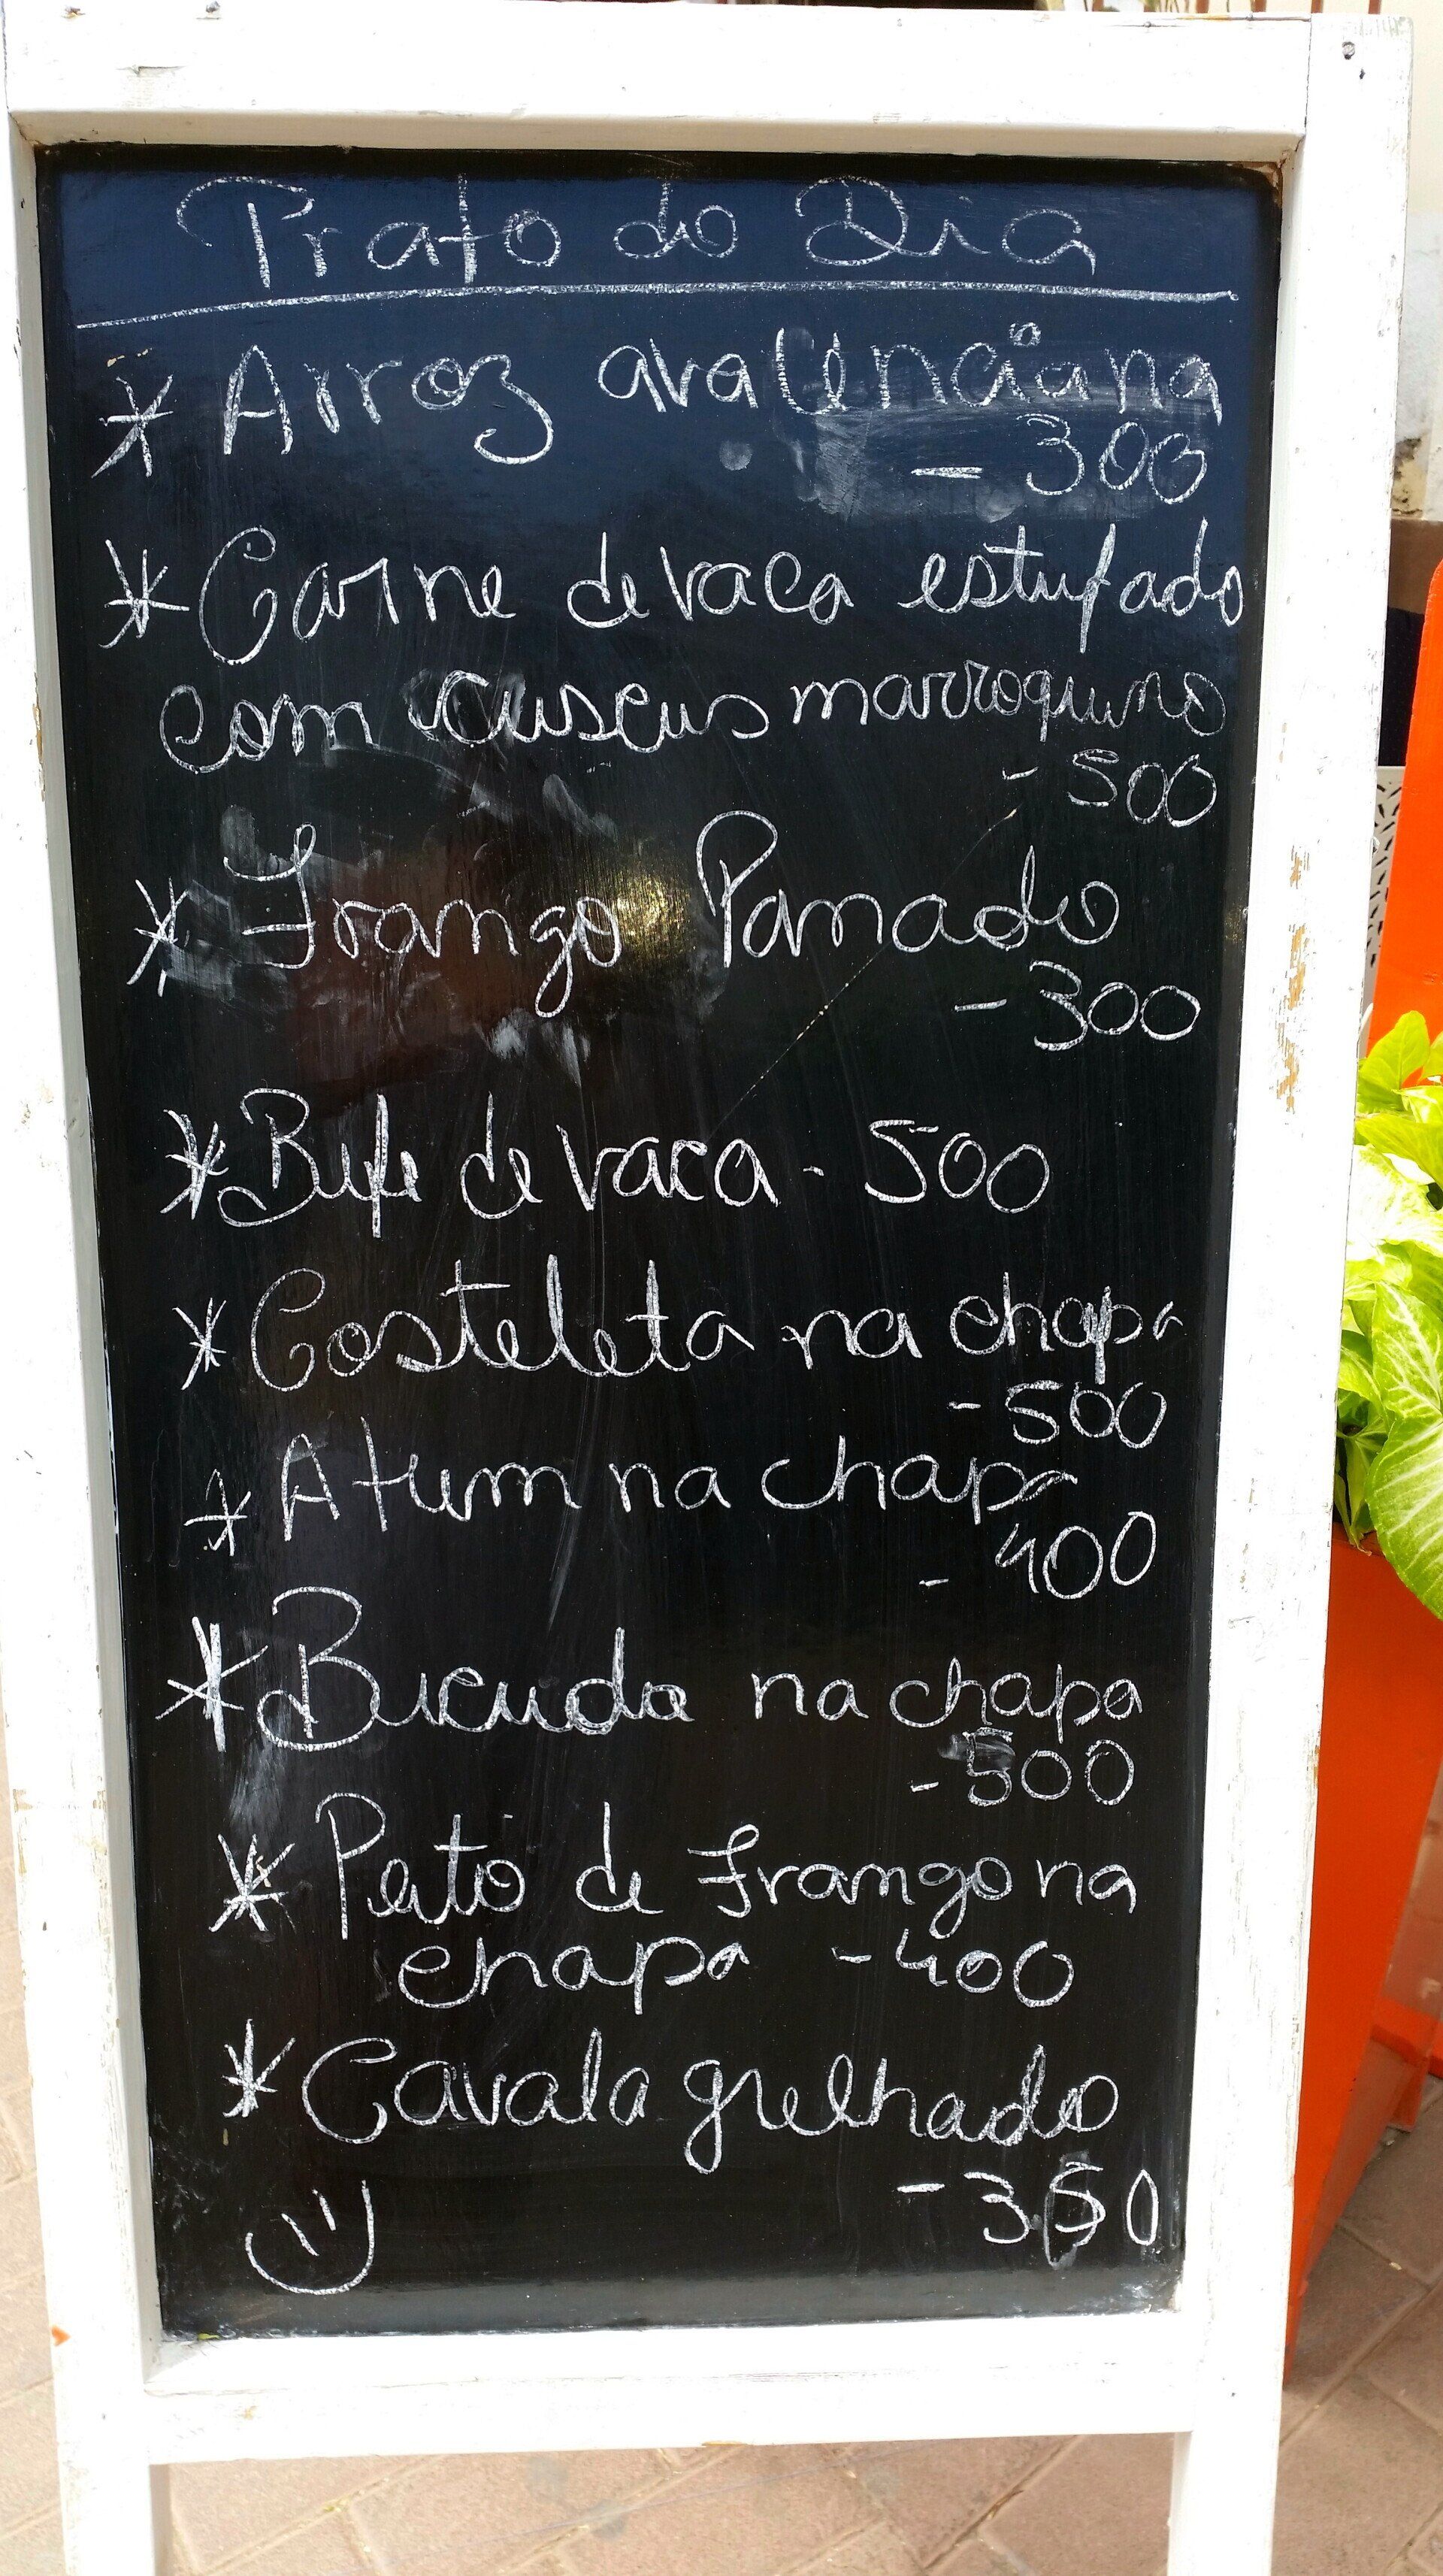 Prato do Dia
* Arroz avalenciana
- 300
* Carne de vaca estufado
com cuscus marroquino
- 500
* Frango Panado
- 300
* Bife de vaca - 500
* Costeleta na chapa
- 500
* Atum na chapa
- 400
* Bicuda na chapa
- 500
* Peito de frango na
chapa - 400
* Cavala grelhado
- 350